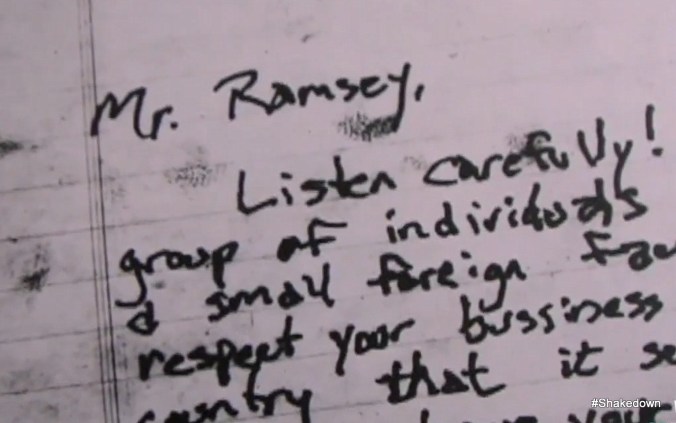 Mr. Ramsey,
Listen carefully!
group of individuals
a small foreign
respect your bussiness
country that it
your
#Shakedown